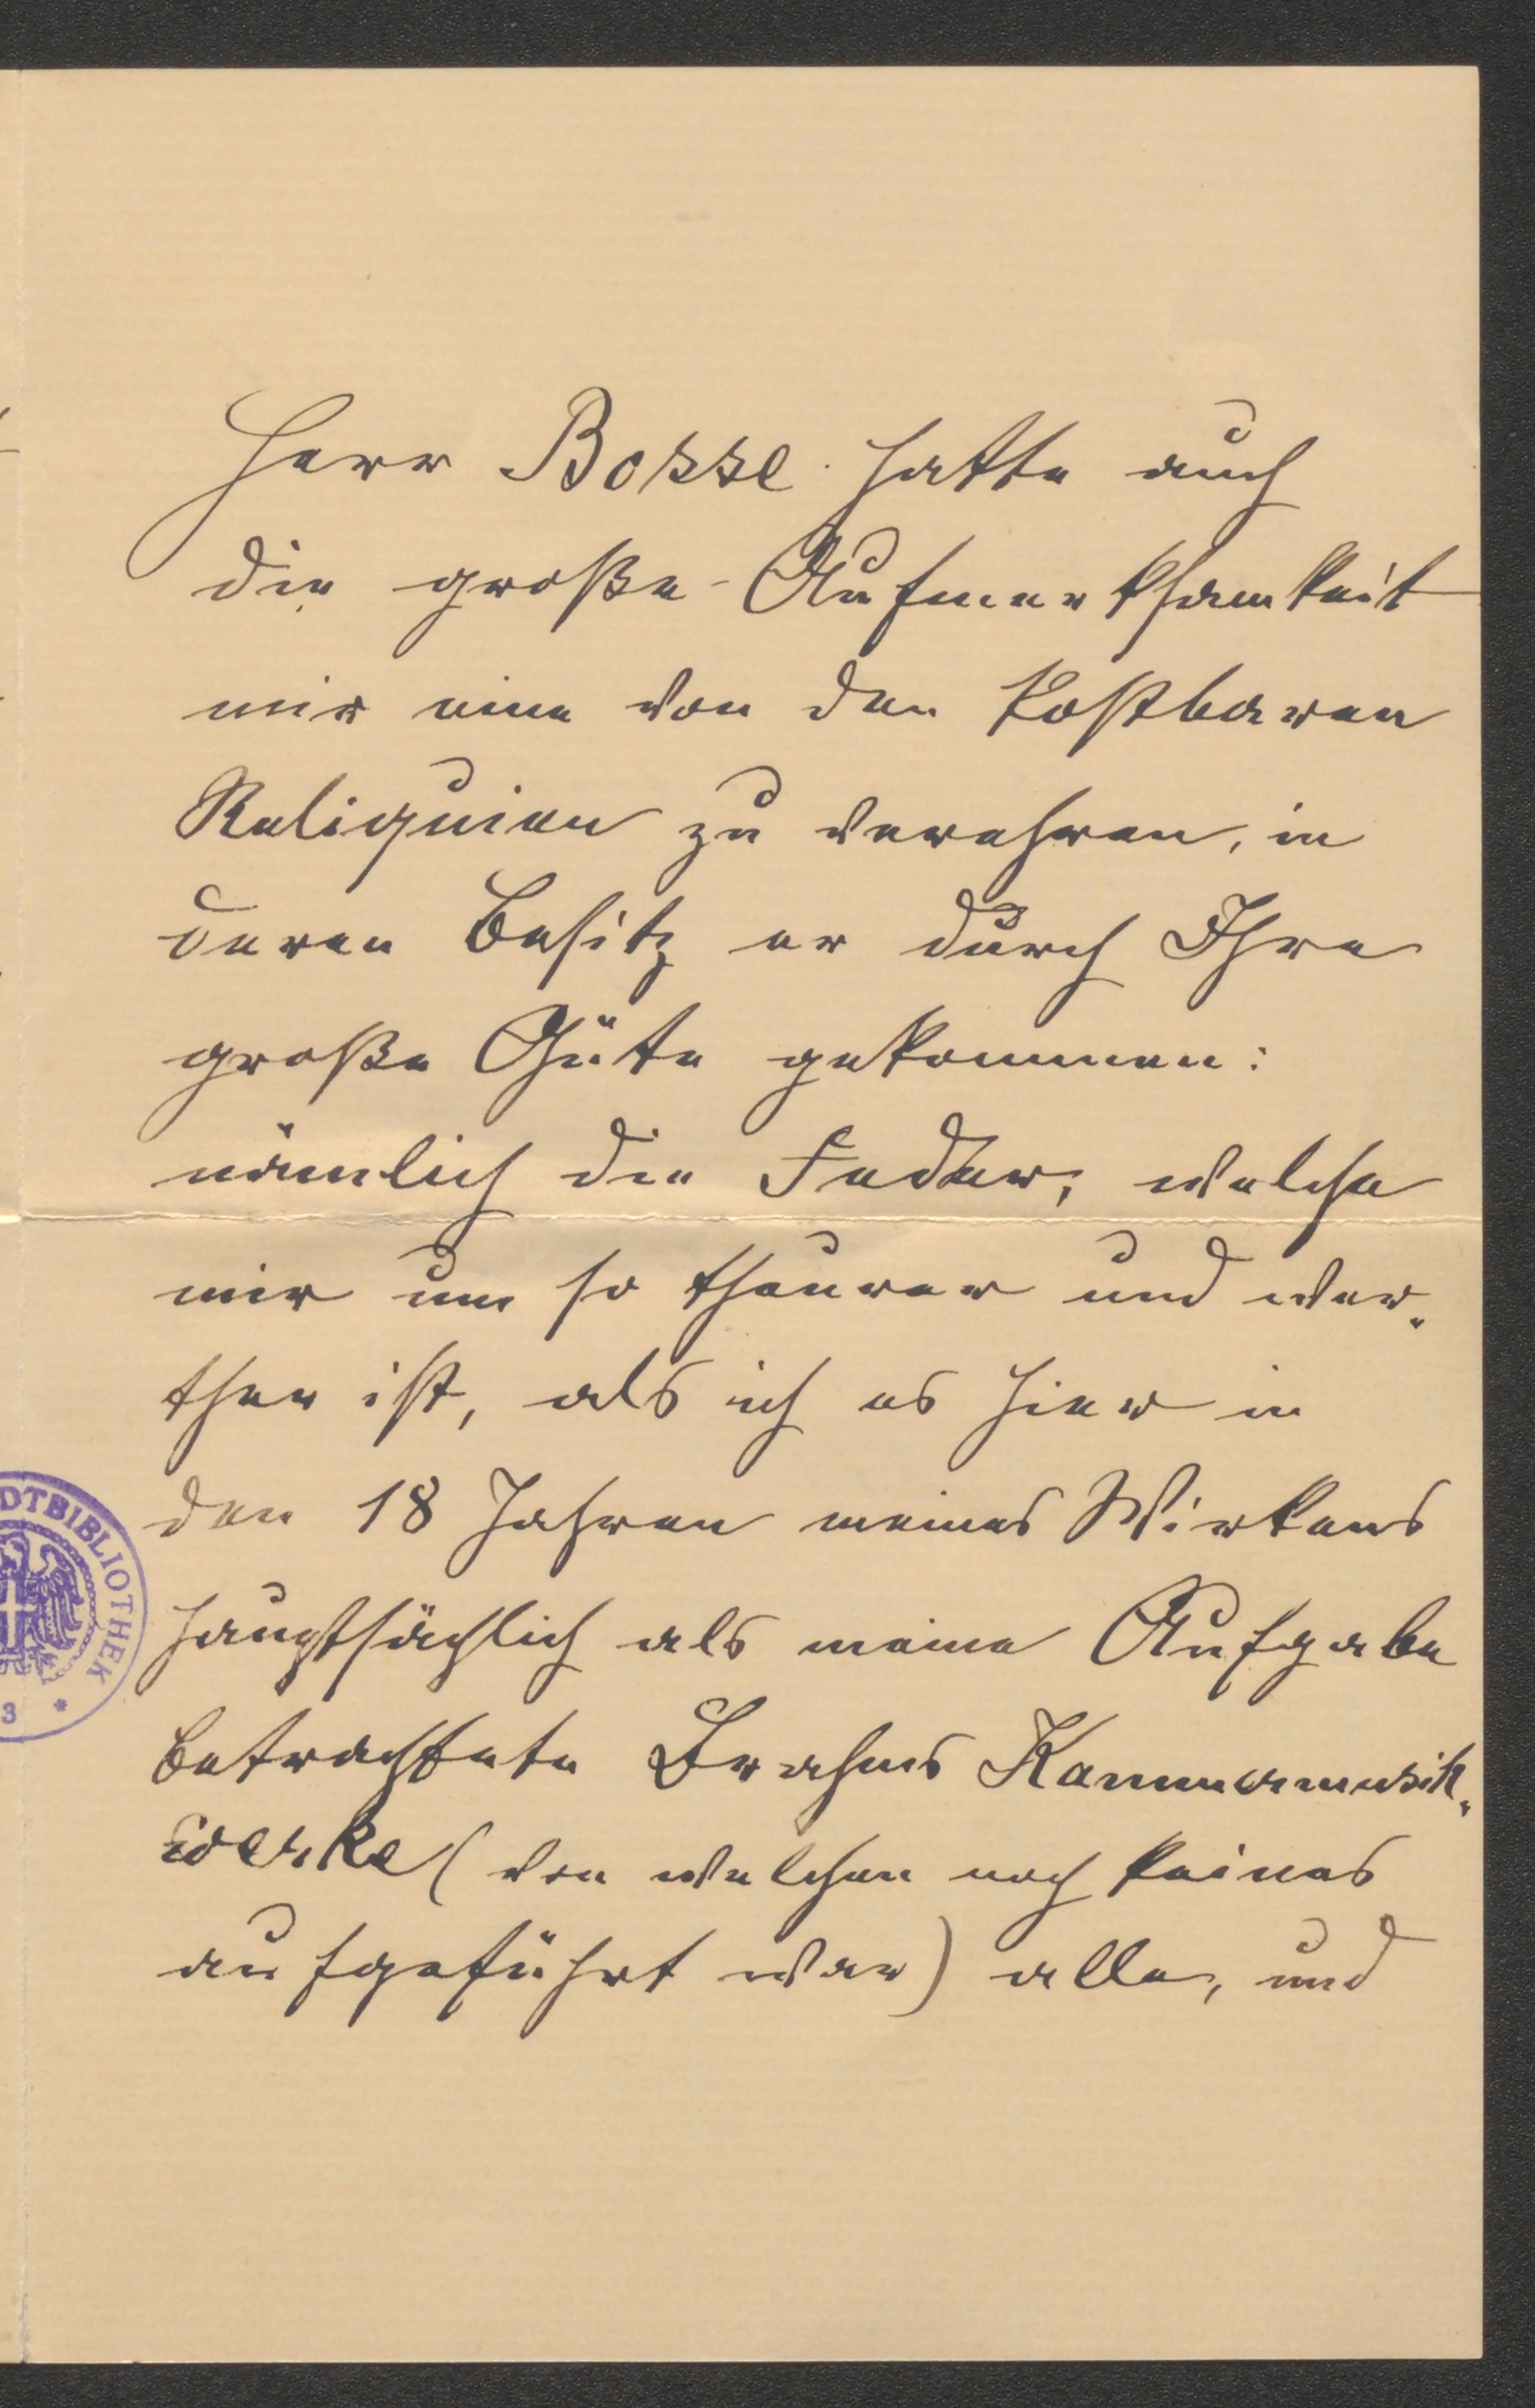 Herr Bosse hatte auch
die große Aufmerksamkeit
mir eine von den kostbaren
Reliquien zu verehren, in
deren Besitz er durch Ihre
große Güte gekommen:
nämlich die Feder, welche
mir um so theurer und wer-
ther ist, als ich es hier in
den 18 Jahren meines Wirkens
hauptsächlich als meine Aufgabe
betrachtete Brahms Kammermusik-
werke (von welchen noch keines
aufgeführt war) alle, und
DTBIBLIOTHEK
3 *